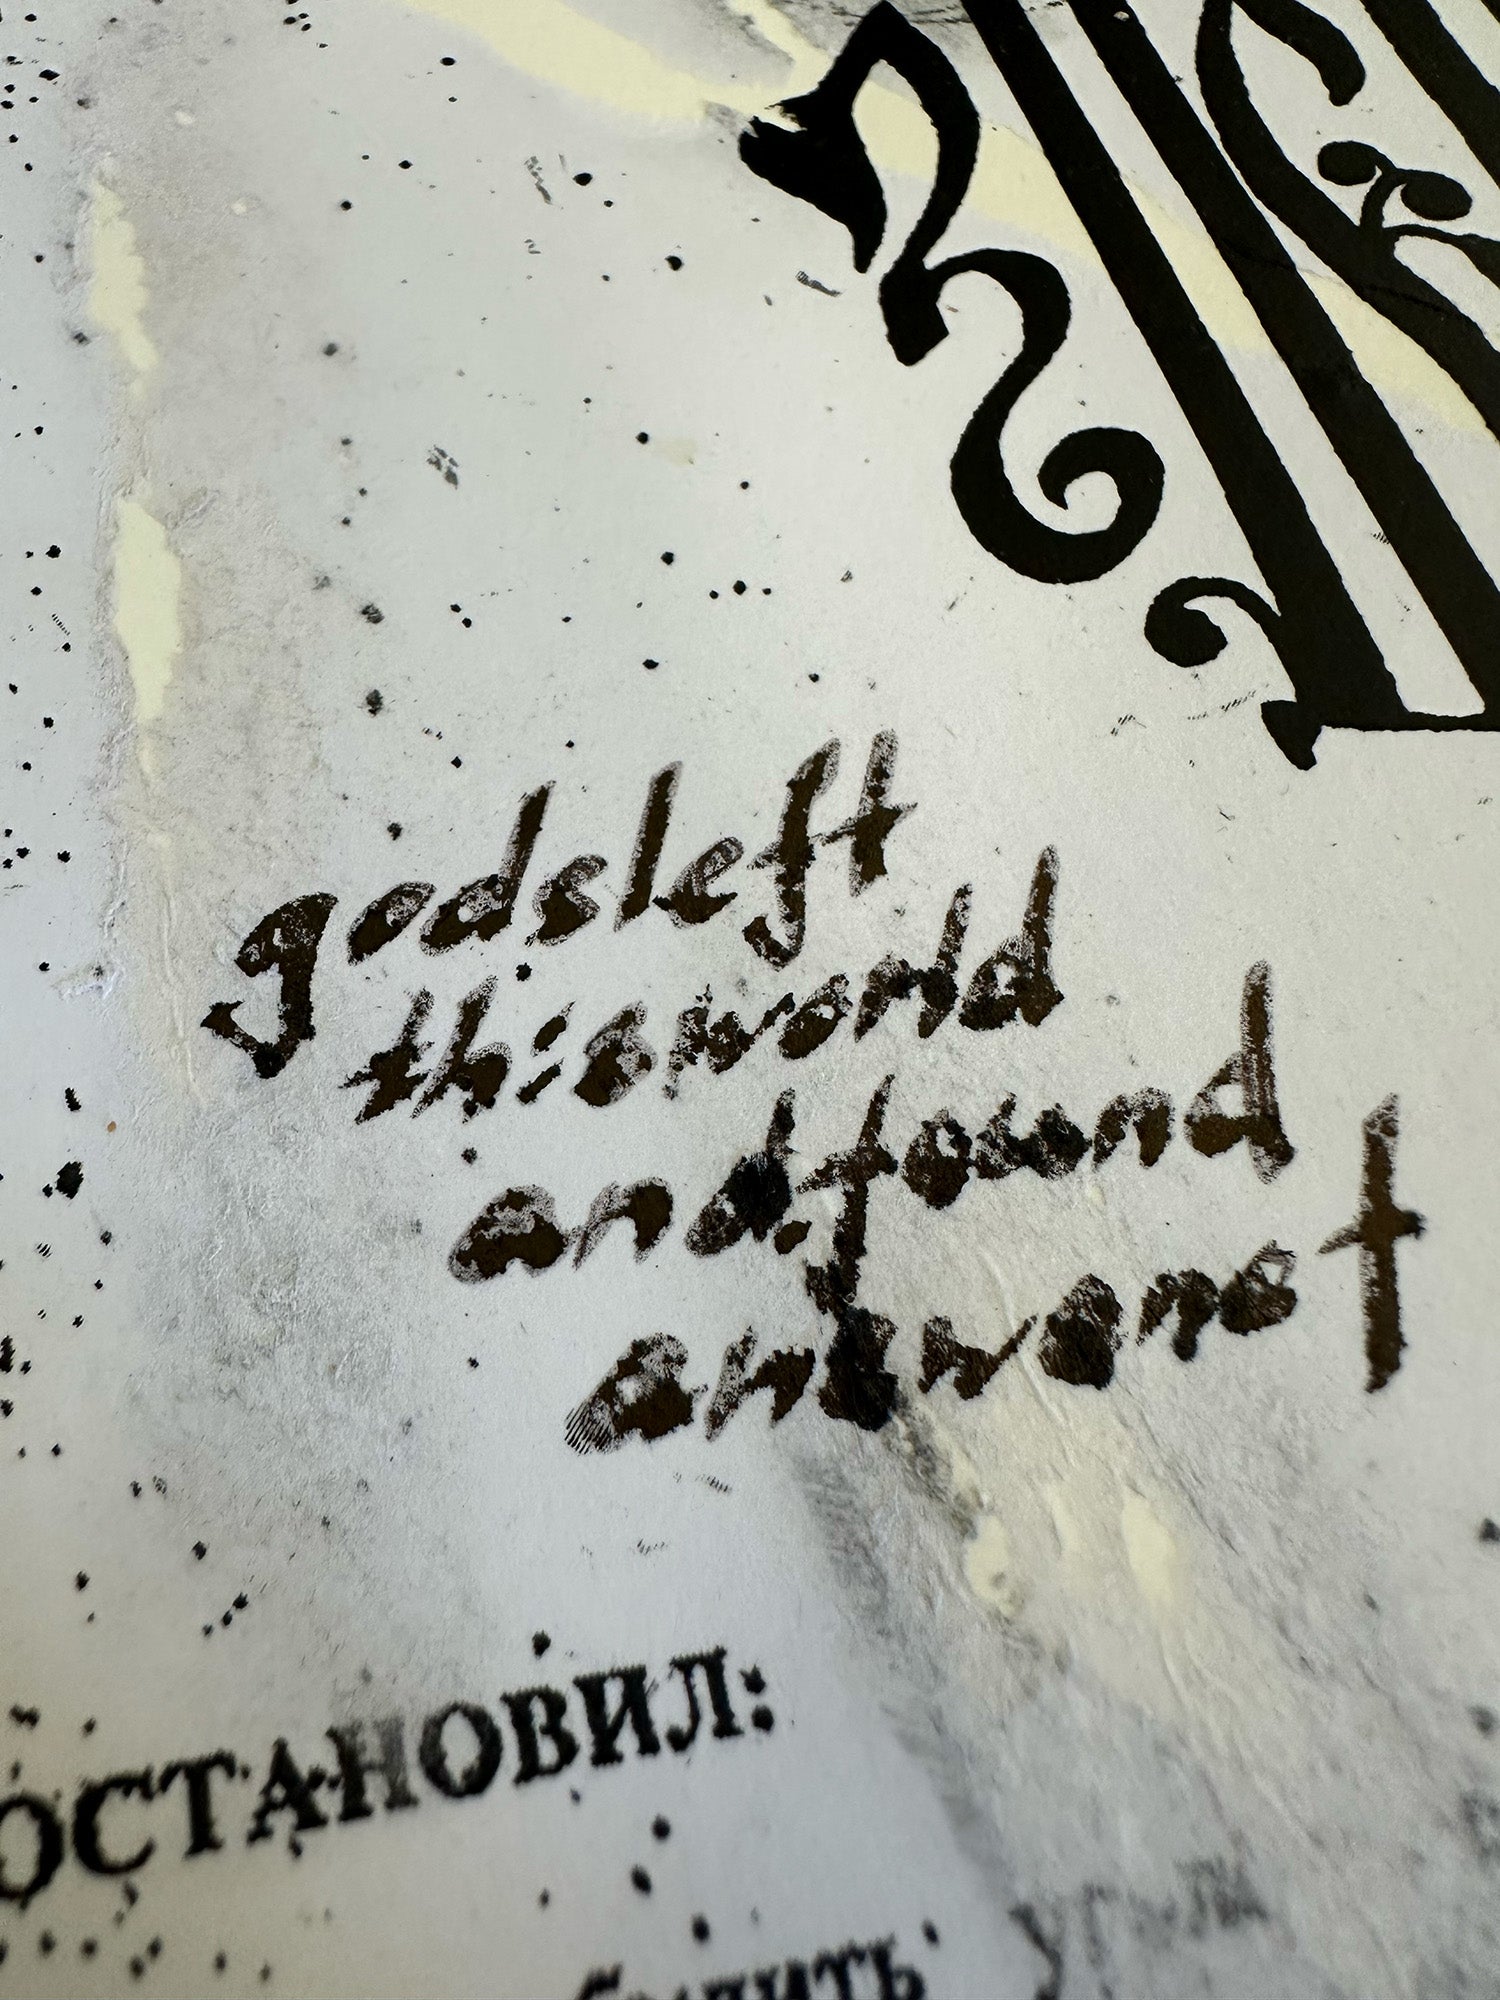 gods left
this world
and found
a new one †
ОСТАНОВИЛ: